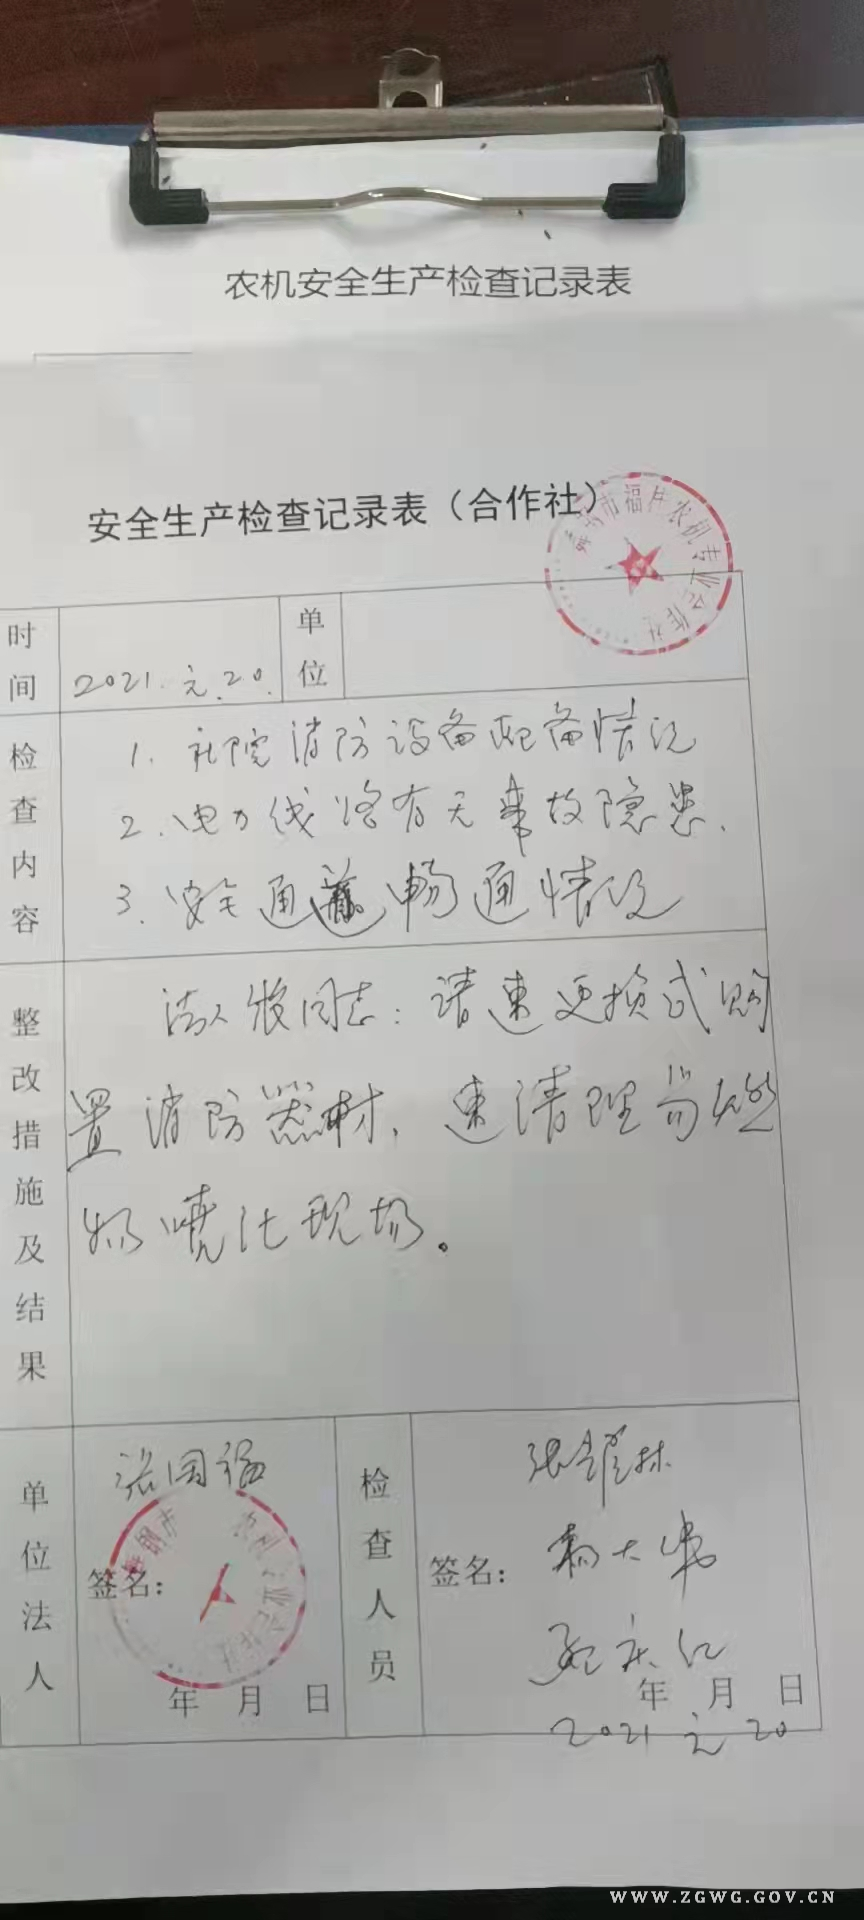 农机安全生产检查记录表
安全生产检查记录表（合作社）
市福 农机专业合作社
时间 2021.元.20. 单位
检查内容
1. 社院消防设备配备情况
2. 电力线路有无事故隐患.
3. 安全通道畅通情况
整改措施及结果
法人 同志：请速更换或购
置消防器材，速清理易燃
物 现场。
单位法人
张国福
签名：
舞钢市 农机专业合作社
年 月 日
检查人员
签名：
大伟
年 月 日
2021 元 20
WWW.ZGWG.GOV.CN